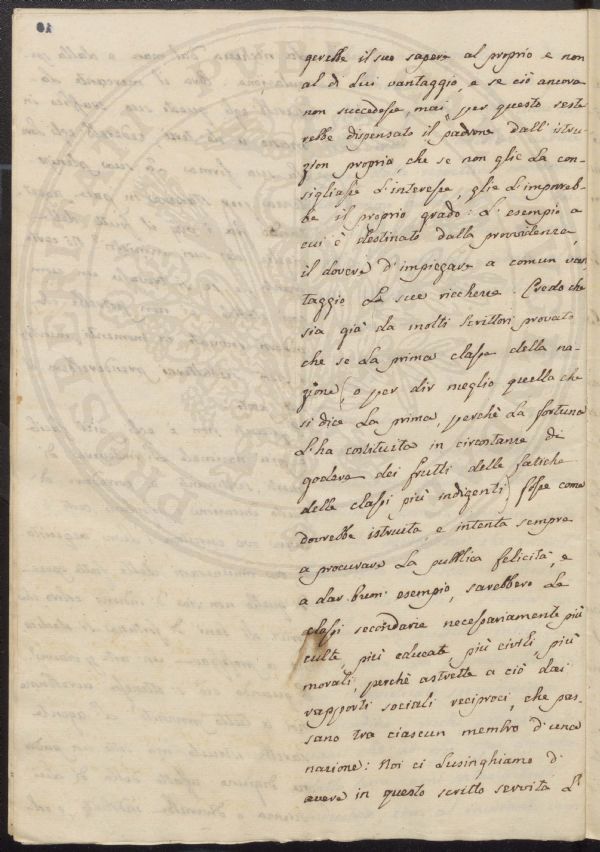 gerebbe il suo sapere al proprio e non
al di lui vantaggio, e se ciò ancora
non succedesse, mai per questo reste
rebbe dispensato il padrone dall' istru
zion propria, che se non glie la con-
sigliasse l'interesse, glie l'imporreb-
be il proprio grado: l'esempio a
cui è destinato dalla provvidenza,
il dovere d'impiegare a comun van
taggio le sue ricchezze. Credo che
sia già da molti scrittori provato
che se la prima classe della na-
zione (o per dir meglio quella che
si dice la prima, perchè la fortuna
l'ha costituita in circostanze di
godere dei frutti delle fatiche
delle classi più indigenti) fosse come
dovrebbe istruita, e intenta sempre
a procurare la pubblica felicità, e
a dar buon' esempio, sarebbero le
classi secondarie necessariamente più
culte, più educate più civili, più
morali, perchè astrette a ciò dai
rapporti sociali reciproci, che pas-
sano tra ciascun membro d'una
nazione: Noi ci lusinghiamo d'
avere in questo scritto servita l'